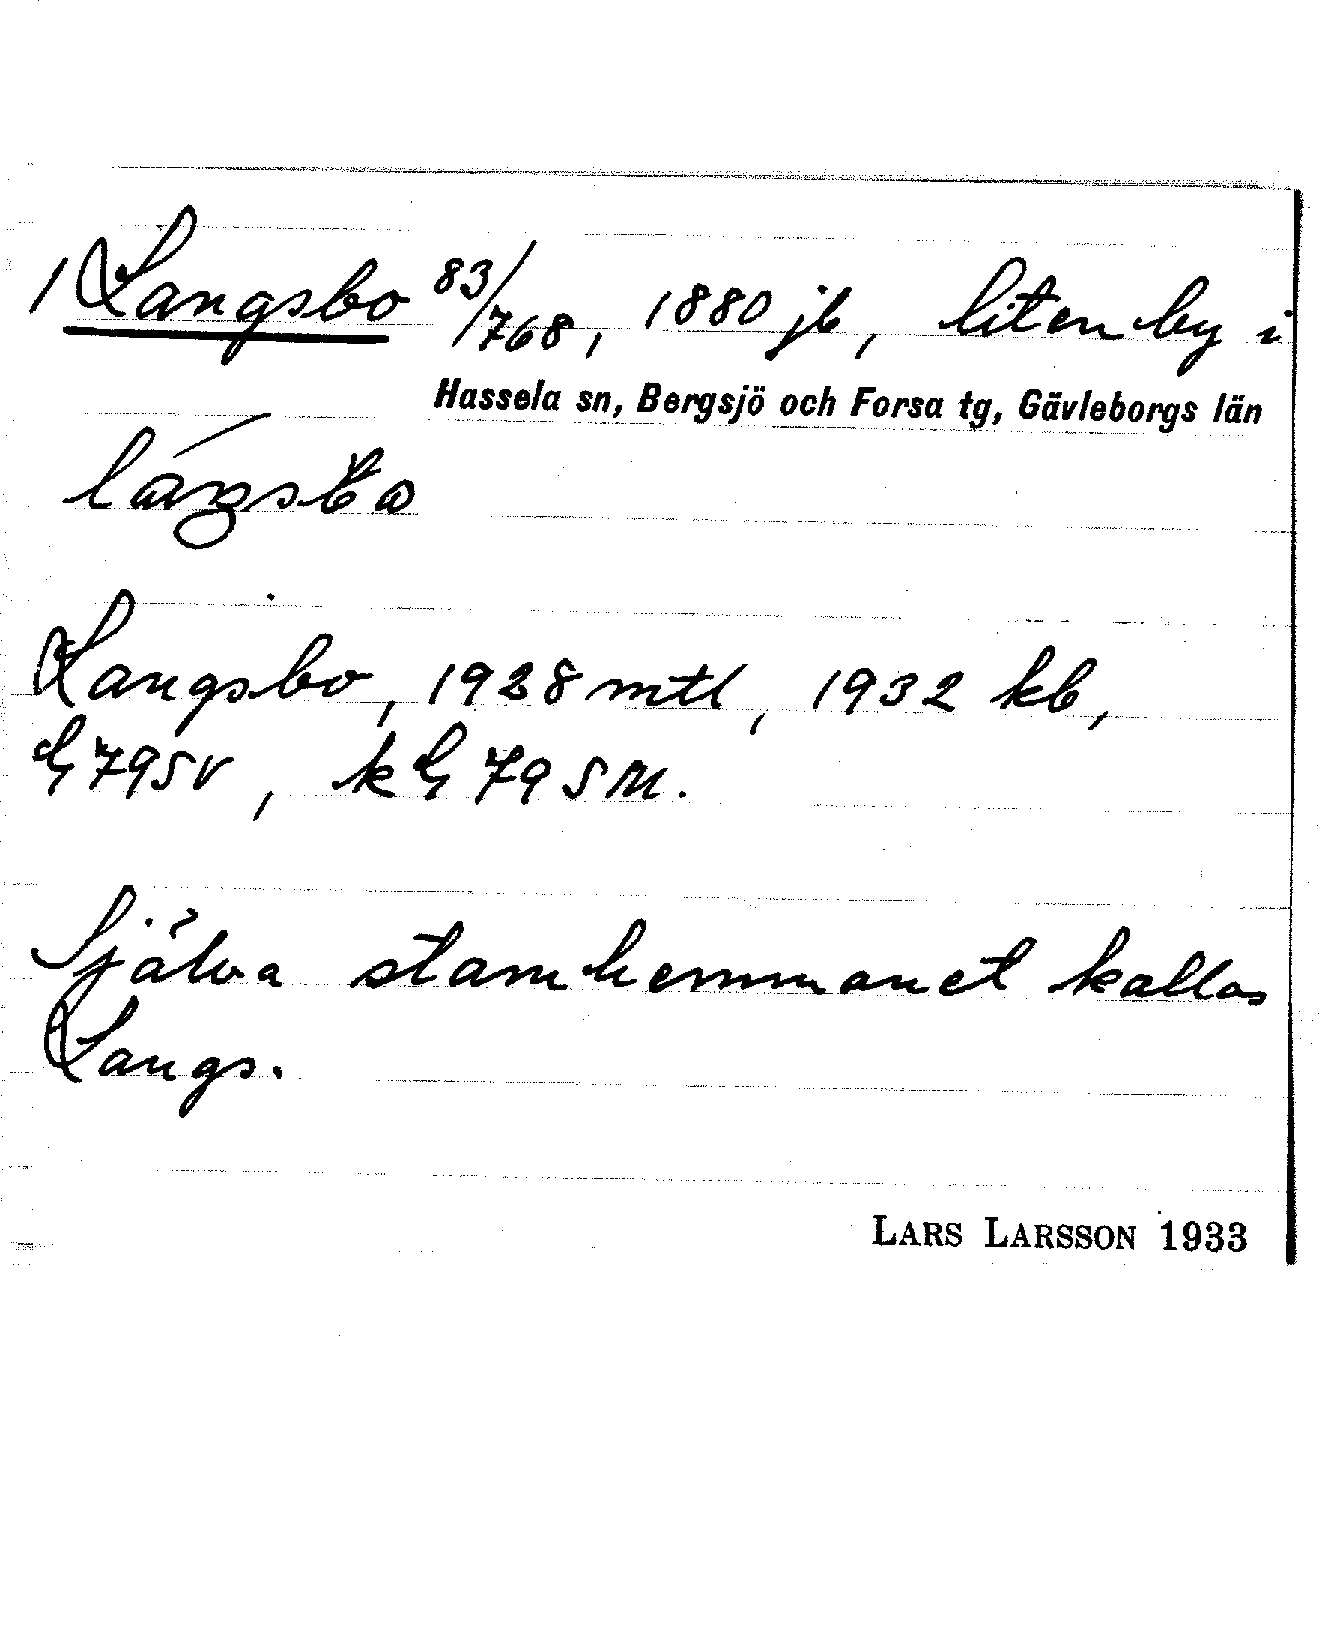 1 Langsbo 83/768, 1880 jb, liten by i
Hassela sn, Bergsjö och Forsa tg, Gävleborgs län
Langsbo, 1928 mtl, 1932 kb,
G 79SV, kG 79 SM.
Själva stamhemmanet kallas
Langs.
LARS LARSSON 1933